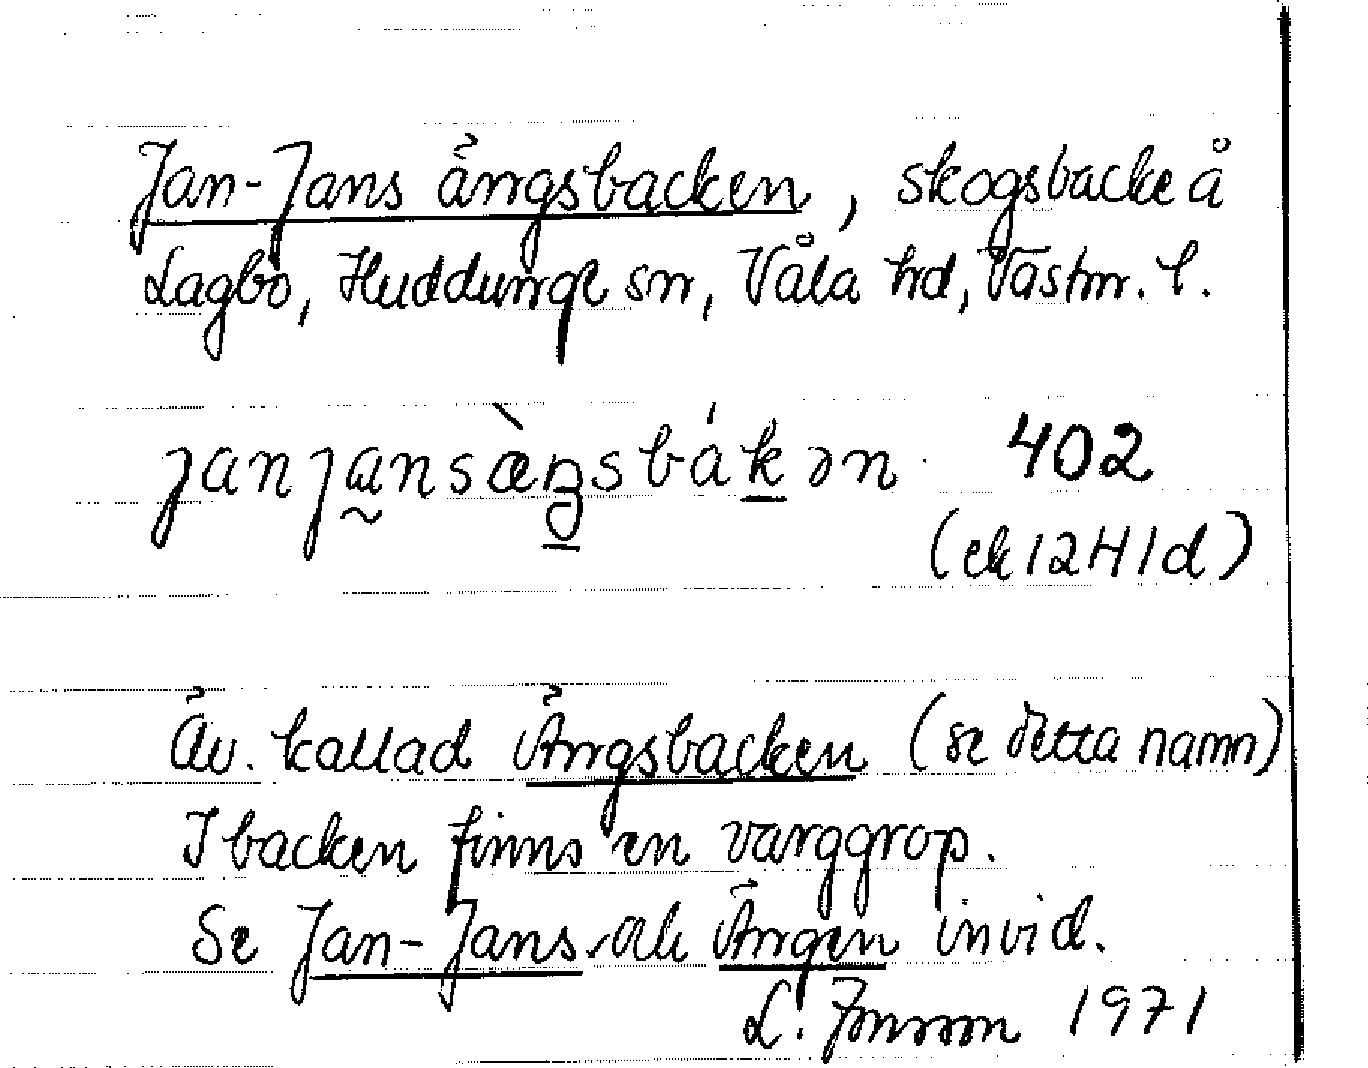 Jan-Jans ängsbacken, skogsbacke å
Lagbo, Huddunge sn, Våla hd, Västm. l.
janjansæ̀ŋsbákən 402
(ek 12H1d)
Äv. kallad Ängsbacken (se detta namn)
I backen finns en varggrop.
Se Jan-Jans och Ängen invid.
L. Jonsson 1971